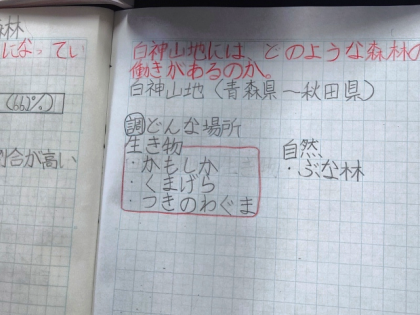 森林
になってい
(66%)
合が高い
白神山地には、どのような森林の
働きがあるのか。
白神山地（青森県～秋田県）
調どんな場所
生き物
・かもしか
・くまげら
・つきのわぐま
自然
・ぶな林